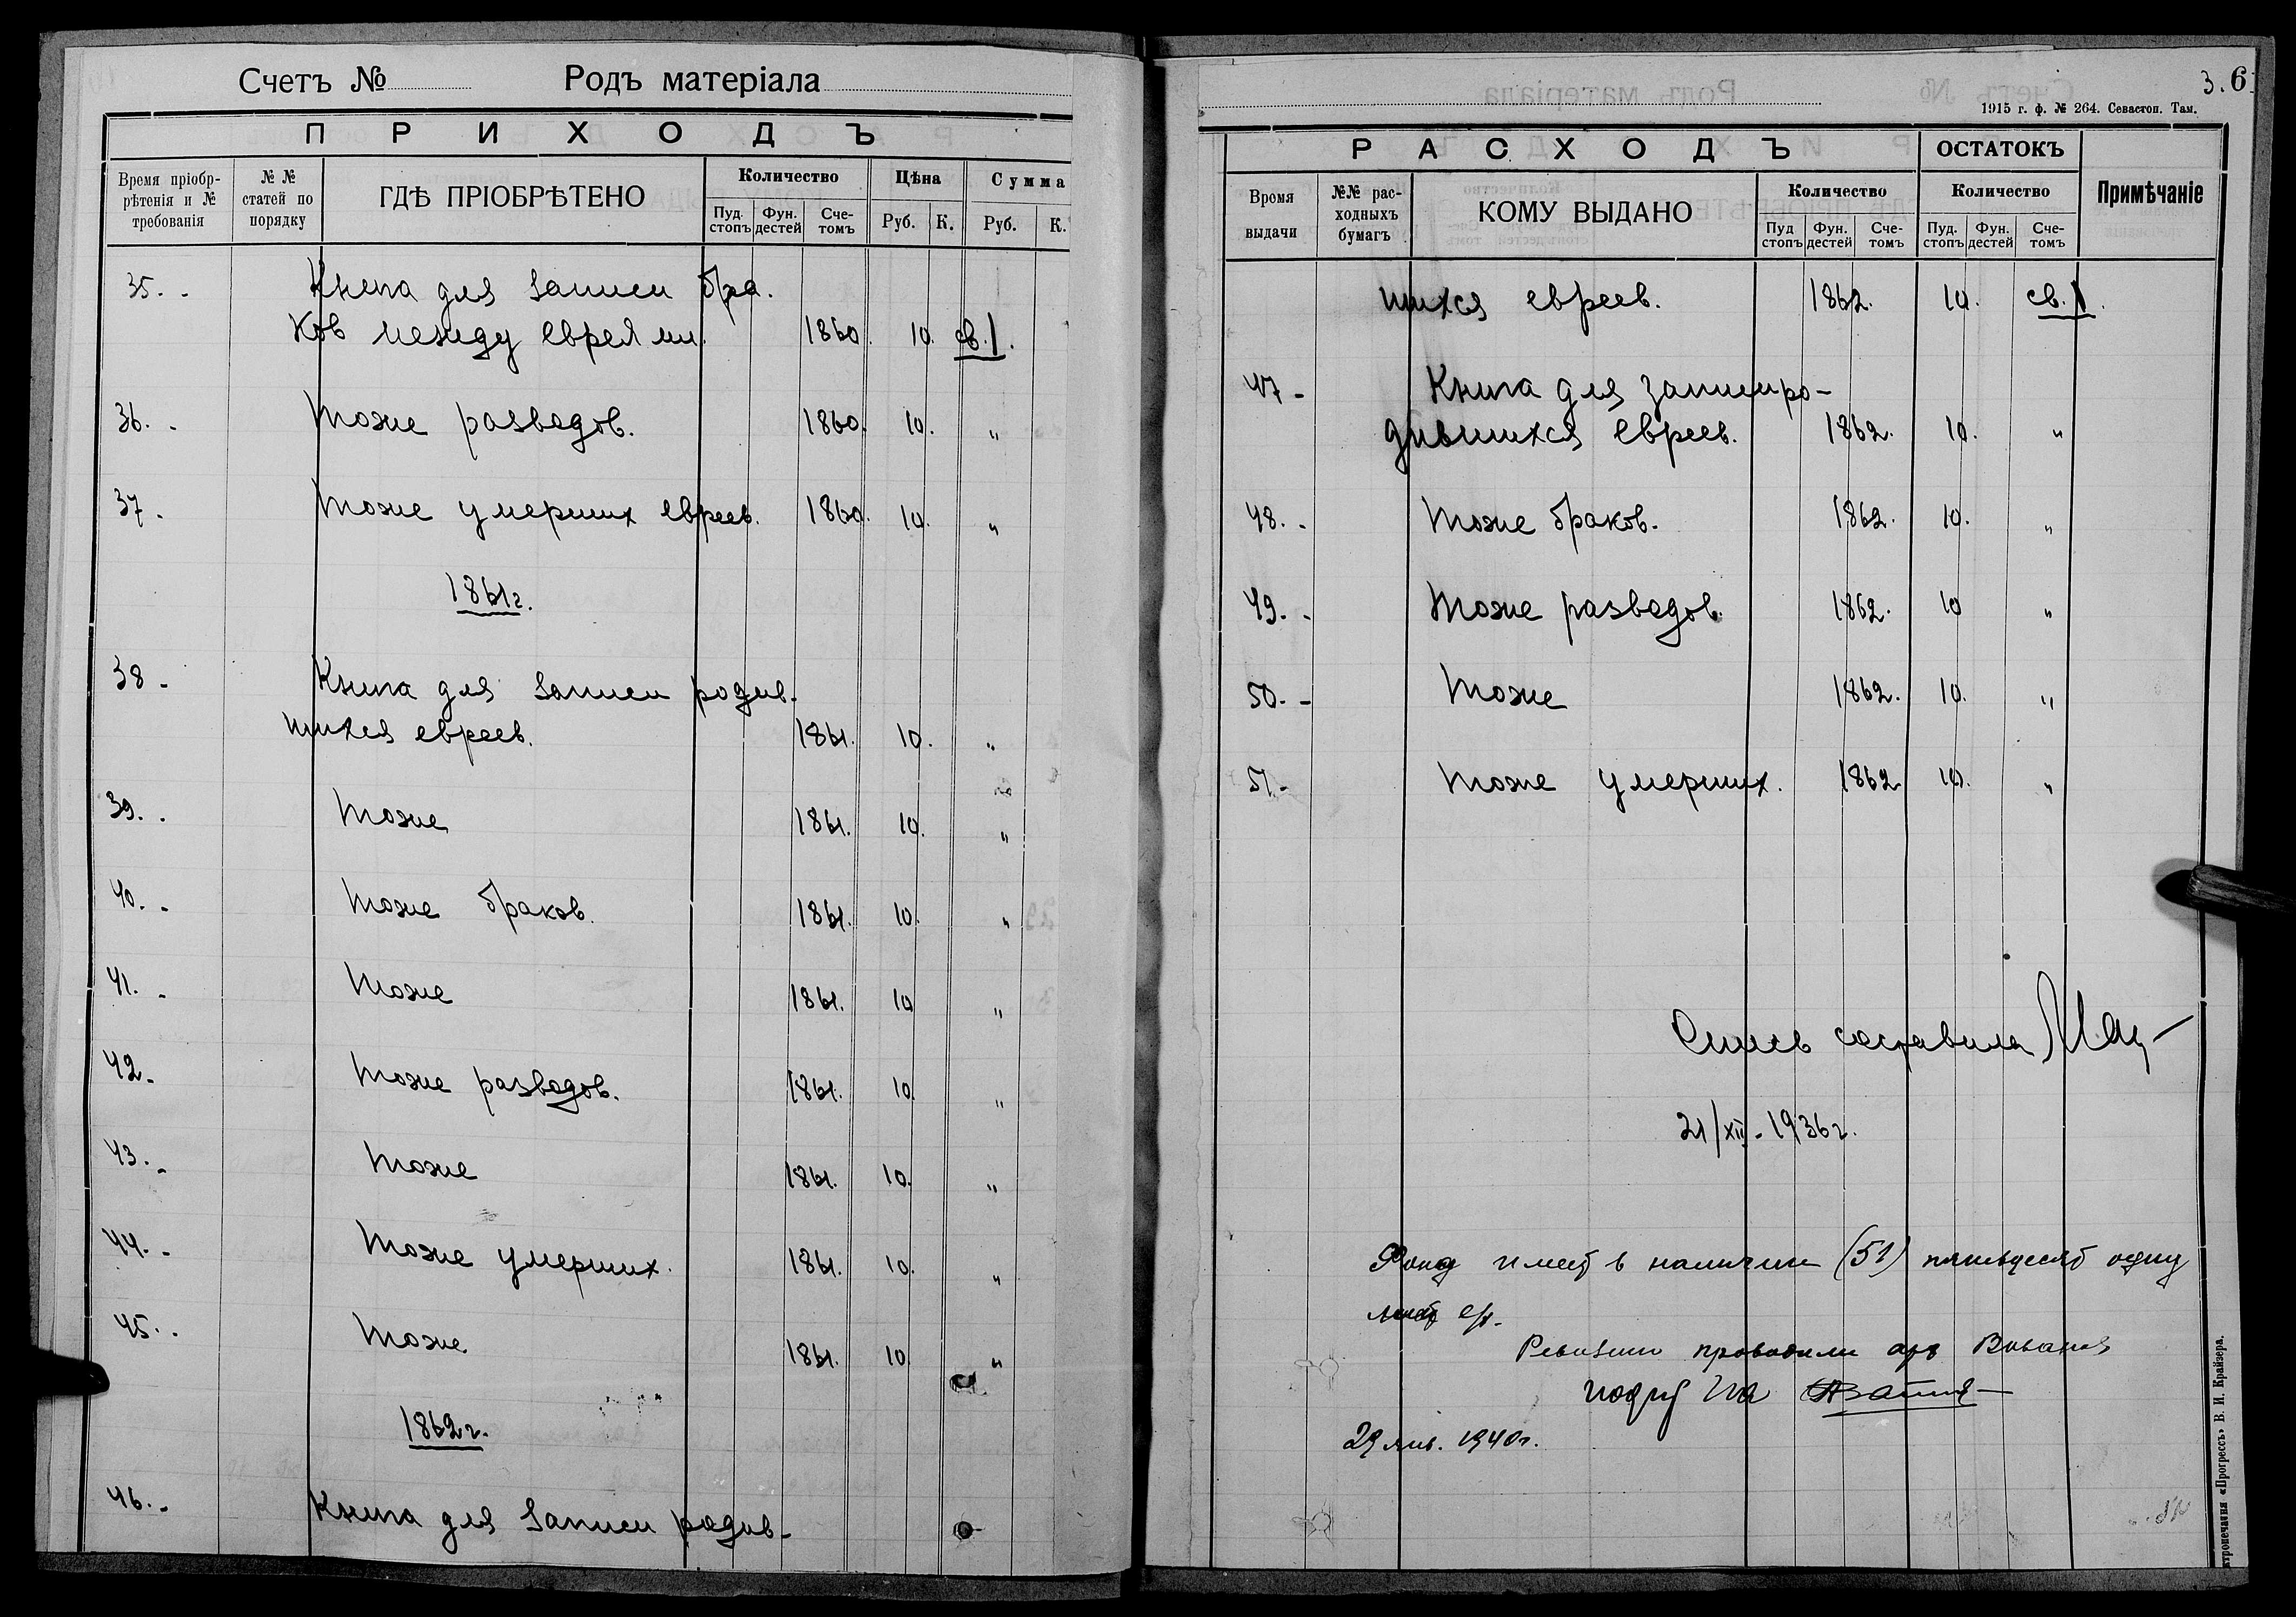 Счетъ № Родъ матеріала
ПРИХОДЪ
Время пріобр-
рѣтенія и №
требованія
№ №
статей по
порядку
ГДѢ ПРІОБРѢТЕНО
Количество
Пуд. стопъ
Фун. дестей
Сче-
томъ
Цѣна
Руб. К.
Сумма
Руб. К.
35. - Книга для записи бра.
ков между евреями. 1860. 10. св. 1.
36. - Тоже разводов. 1860. 10. „
37. - Тоже умерших евреев. 1860. 10. „
1861 г.
38 - Книга для записи родив-
шихся евреев. 1861. 10. „
39. - Тоже 1861. 10. „
40. - Тоже браков. 1861. 10. „
41. - Тоже 1861. 10 „
42. - Тоже разводов. 1861. 10. „
43. - Тоже 1861. 10. „
44. - Тоже умерших. 1861. 10. „
45. - Тоже 1861. 10. „
1862 г.
46. - Книга для записи родив-
3. 6.
1915 г. ф. № 264. Севастоп. Там.
РАСХОДЪ
Время
выдачи
№№ рас-
ходныхъ
бумагъ
КОМУ ВЫДАНО
Количество
Пуд стопъ
Фун. дестей
Сче-
томъ
ОСТАТОКЪ
Количество
Пуд. стопъ
Фун. дестей
Сче-
томъ
Примѣчаніе
шихся евреев. 1862. 10. св. 1.
47 - Книга для записи ро-
дившихся евреев. 1862. 10. „
48. - Тоже браков. 1862. 10. „
49. - Тоже разводов. 1862. 10 „
50. - Тоже 1862. 10. „
51. - Тоже умерших. 1862. 10. „
Опись составила
21/XII - 1936 г.
Фонд имеет в наличии (51) пятьдесят одну
Ревизию проводили
29 янв. 1940 г.
ктропечатня «Прогрессъ» В. И. Крайзера.